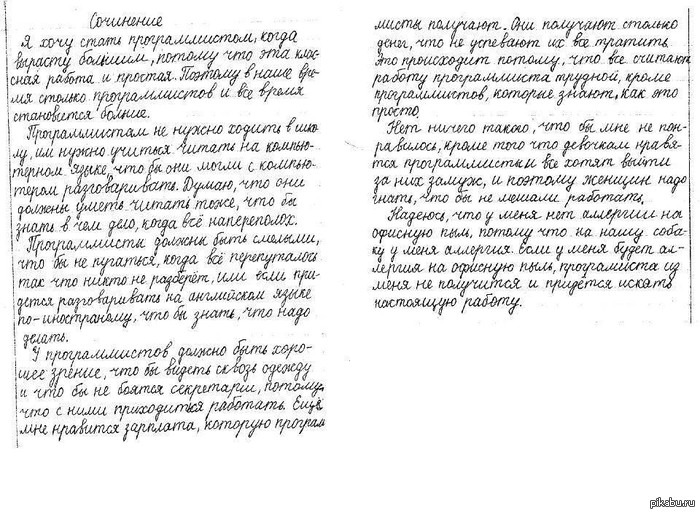 Сочинение
Я хочу стать программистом, когда
вырасту большим, потому что эта клас-
сная работа и простая. Поэтому в наше вре-
мя столько программистов и все время
становится больше.
Программистам не нужно ходить в шко-
лу, им нужно учиться читать на компью-
терном языке, что бы они могли с компью-
тером разговаривать. Думаю, что они
должны уметь читать тоже, что бы
знать в чем дело, когда всё наперополох.
Программисты должны быть смелыми,
что бы не пугаться, когда всё перепуталось
так что никто не разберёт, или если при-
дется разговаривать на английском языке
по-иностраному, что бы знать, что надо
делать.
У программистов должно быть хоро-
шее зрение, что бы видеть сквозь одежду
и что бы не боятся секретарш, потому,
что с ними приходиться работать. Ещё
мне нравится зарплата, которую програм
мисты получают. Они получают столько
денег, что не успевают их все тратить.
Это происходит потому, что все считают
работу программиста трудной, кроме
программистов, которые знают, как это
просто.
Нет ничего такого, что бы мне не пон-
равилось, кроме того что девочкам нравя-
тся программисты и все хотят выйти
за них замуж, и поэтому женщин надо
гнать, что бы не мешали работать.
Надеюсь, что у меня нет аллергии на
офисную пыль, потому что на нашу соба-
ку у меня аллергия. Если у меня будет ал-
лергия на офисную пыль, програмиста из
меня не получится и придётся искать
настоящую работу.
pikabu.ru